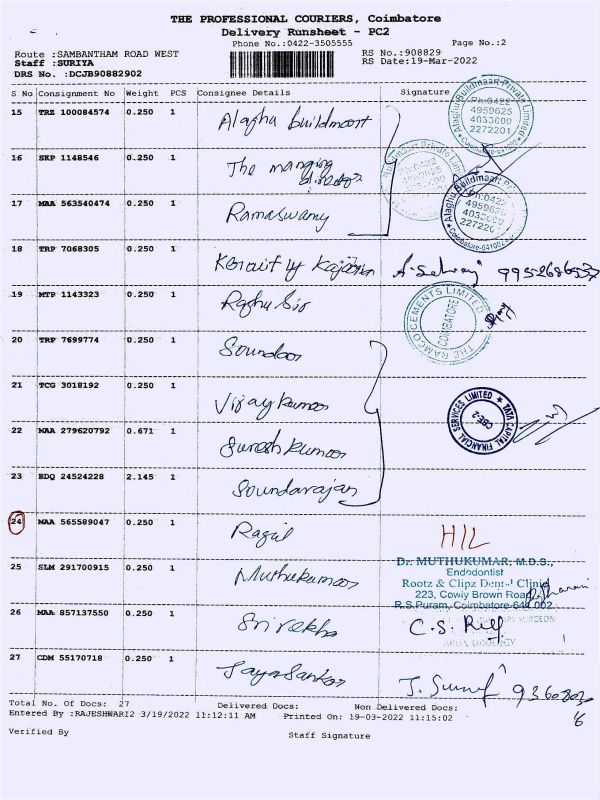 THE PROFESSIONAL COURIERS, Coimbatore
Delivery Runsheet - PC2
Phone No.:0422-3505555 Page No.:2
Route :SAMBANTHAM ROAD WEST RS No.:908829
Staff :SURIYA RS Date:19-Mar-2022
DRS No. :DCJB90882902
S No Consignment No Weight PCS Consignee Details Signature
15 TRZ 100084574 0.250 1 Alaghu buildmaart
16 SKP 1148546 0.250 1 The
17 MAA 563540474 0.250 1 Ramaswamy
Alaghu Buildmaart Private Limited
Ph:0422
4959625
4033000
2272201
Coimbatore-641002
18 TRP 7068305 0.250 1
19 MTP 1143323 0.250 1 Raghu Sir
THE RAMCO CEMENTS LIMITED
COIMBATORE
20 TRP 7699774 0.250 1
21 TCG 3018192 0.250 1 Vijaykumar
TATA CAPITAL FINANCIAL SERVICES LIMITED
CBE-2
22 MAA 279620792 0.671 1 Suresh kumar
23 EDQ 24524228 2.145 1 Soundarajan
24 MAA 565589047 0.250 1 Ragul H/L
25 SLM 291700915 0.250 1 Muthukumar
Dr. MUTHUKUMAR, M.D.S.,
Endodontist
Rootz & Clipz Dental Clinic
223, Cowly Brown Road
R.S.Puram, Coimbatore-641 002.
26 MAA 857137550 0.250 1 Srirekha
27 CDM 55170718 0.250 1
Total No. Of Docs: 27 Delivered Docs: Non Delivered Docs:
Entered By :RAJESHWARI2 3/19/2022 11:12:11 AM Printed On: 19-03-2022 11:15:02
Verified By Staff Signature